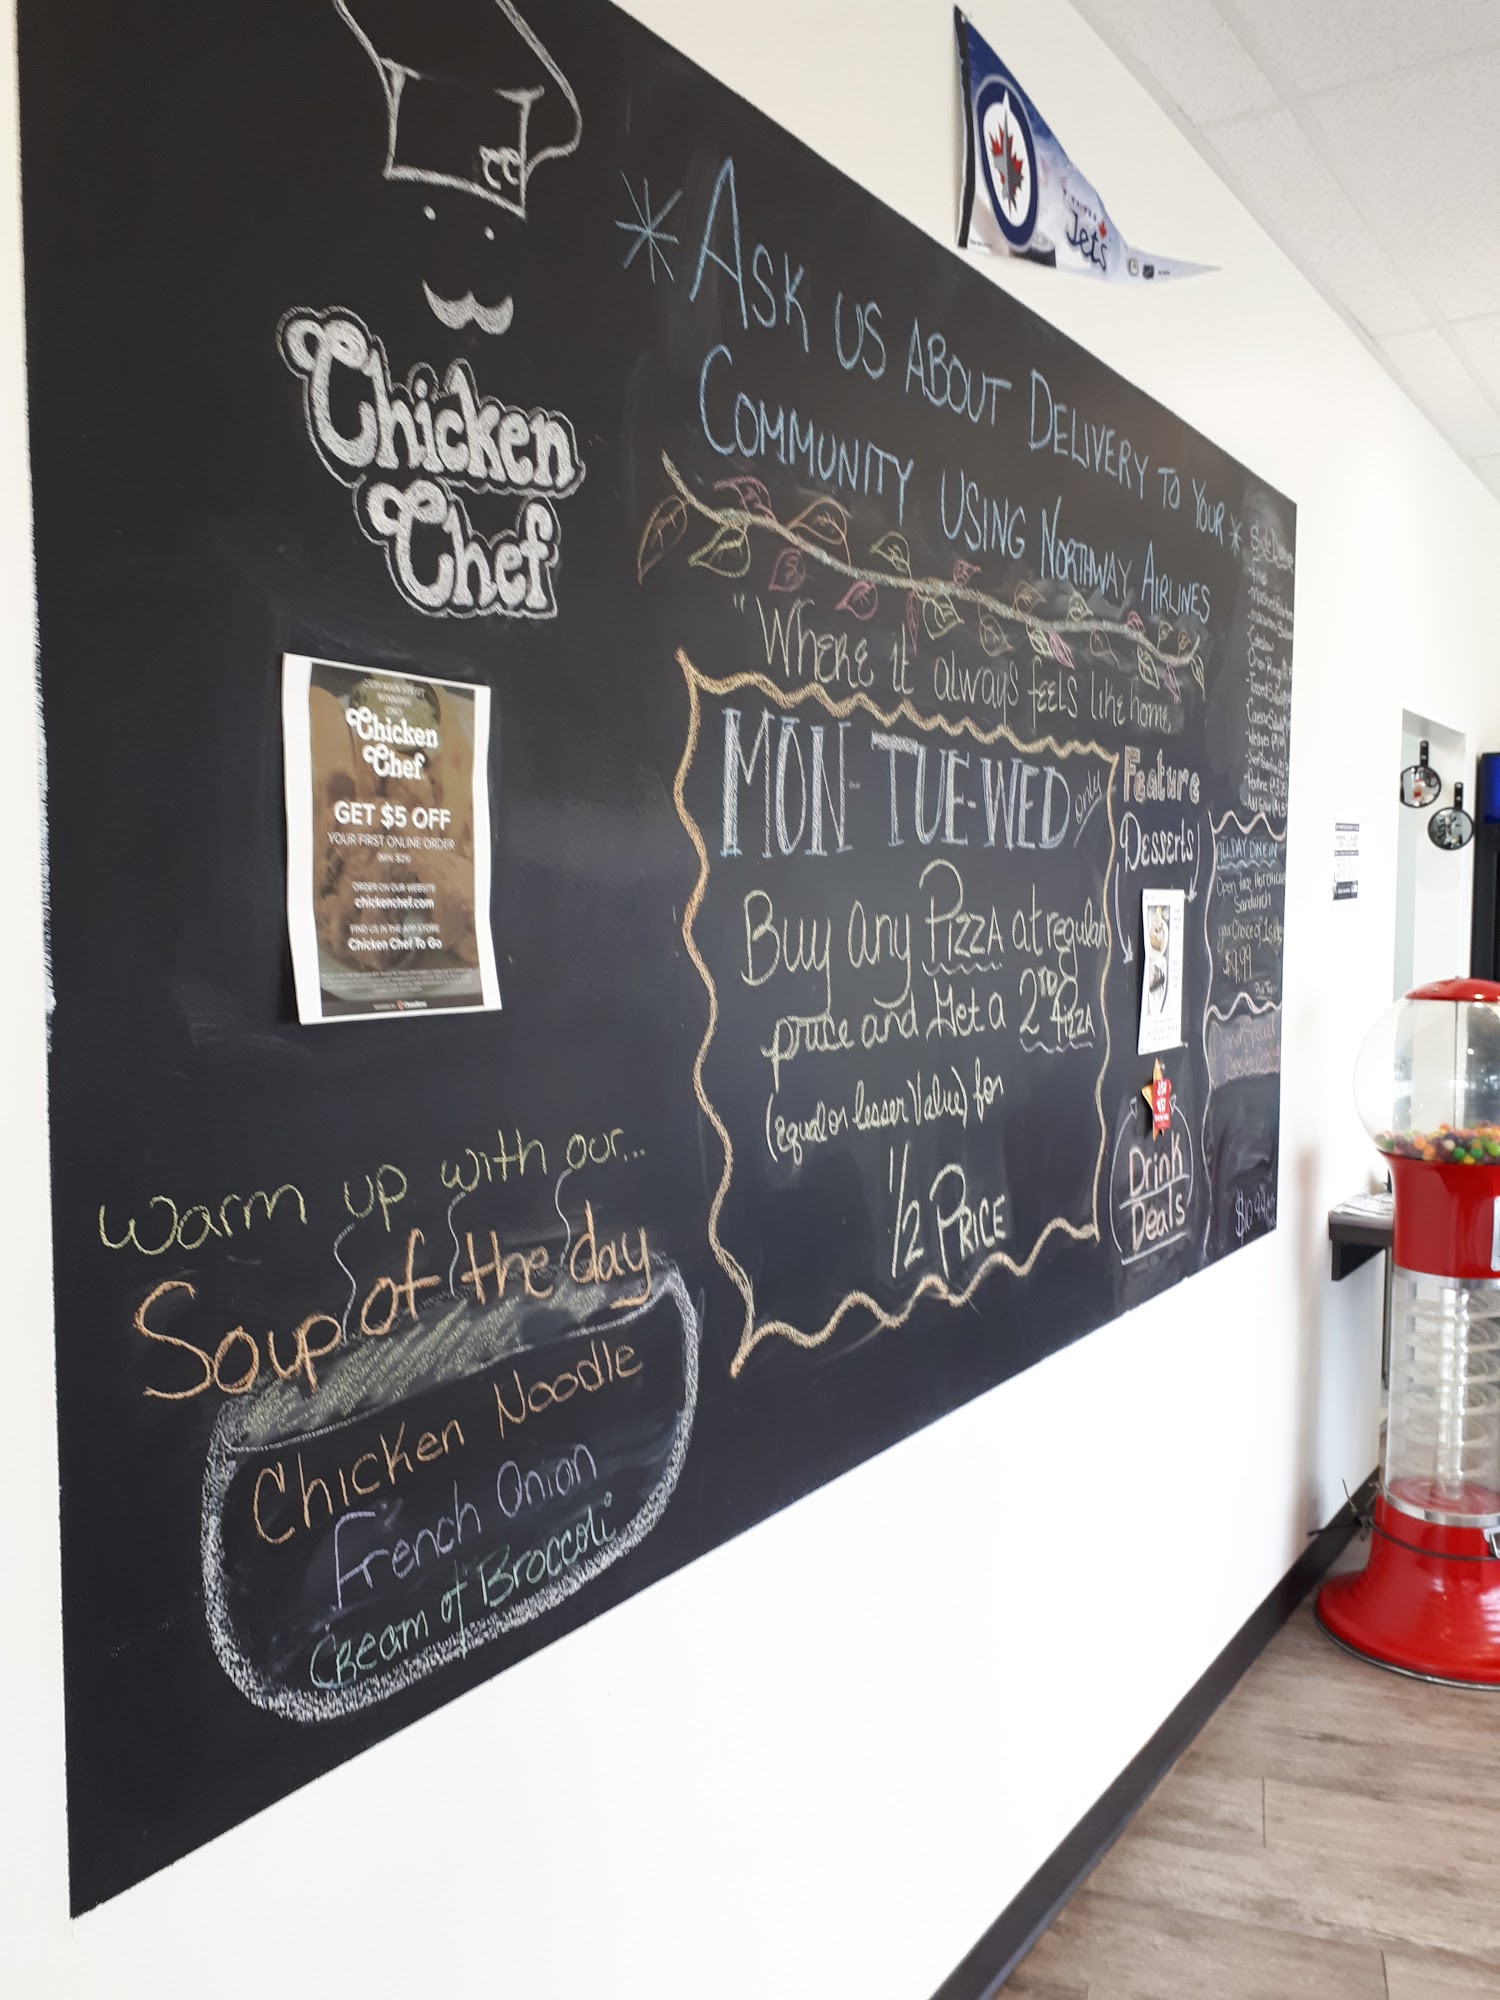 cc
Chicken
Chef
2535 MAIN STREET
WINNIPEG
ONLY
Chicken
Chef
GET $5 OFF
YOUR FIRST ONLINE ORDER
ORDER ON OUR WEBSITE
chickenchef.com
FIND US IN THE APP STORE
Chicken Chef To Go
Warm up with our...
Soup of the day
Chicken Noodle
French Onion
Cream of Broccoli
*ASK US ABOUT DELIVERY TO YOUR*
COMMUNITY USING NORTHWAY AIRLINES
"Where it always feels like home
MON-TUE-WED only
Buy any Pizza at regular
price and Get a 2nd Pizza
(equal or lesser value) for
1/2 PRICE
Feature
Desserts
Drink
Deals
Fries
Coleslaw
ALL DAY DINE IN
Open face Hot Chicken
Sandwich
your choice of 1 side
$9.99
WINNIPEG
Jets